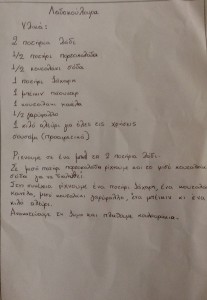 Λαδοκούλουρα
Υλικά:
2 ποτήρια λάδι
1/2 ποτήρι πορτοκαλάδα
1/2 κουταλάκι σόδα
1 ποτήρι ζάχαρη
1 μπέικιν πάουντερ
1 κουταλάκι κανέλα
1/2 γαρύφαλλο
1 κιλό αλεύρι για όλες τις χρήσεις
σουσάμι (προαιρετικό)
Ρίχνουμε σε ένα μπολ τα 2 ποτήρια λάδι.
Σε μισό ποτήρι πορτοκαλάδα ρίχνουμε και το μισό κουταλάκι
σόδα για να
Στη συνέχεια ρίχνουμε ένα ποτήρι ζάχαρη, ένα κουταλάκι
κανέλα, μισό κουταλάκι γαρύφαλλο, ένα μπέικιν κι ένα
κιλό αλεύρι.
Ανακατεύουμε τη ζύμη και πλάθουμε κουλουράκια.